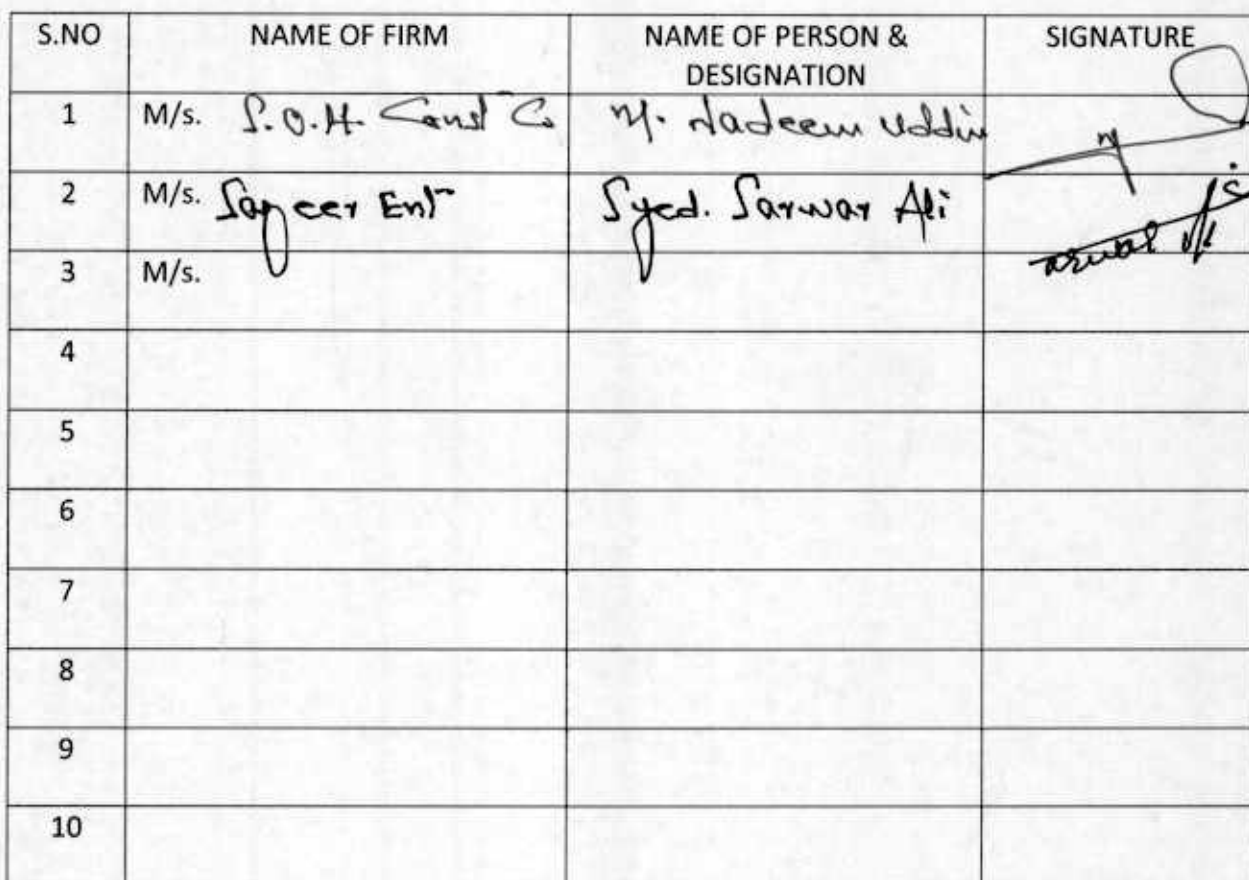 S.NO NAME OF FIRM NAME OF PERSON & SIGNATURE
DESIGNATION
1 M/s. S.O.H. Const Co M. Nadeem Uddin
2 M/s. Sageer Ent Syed. Sarwar Ali
3 M/s.
4
5
6
7
8
9
10